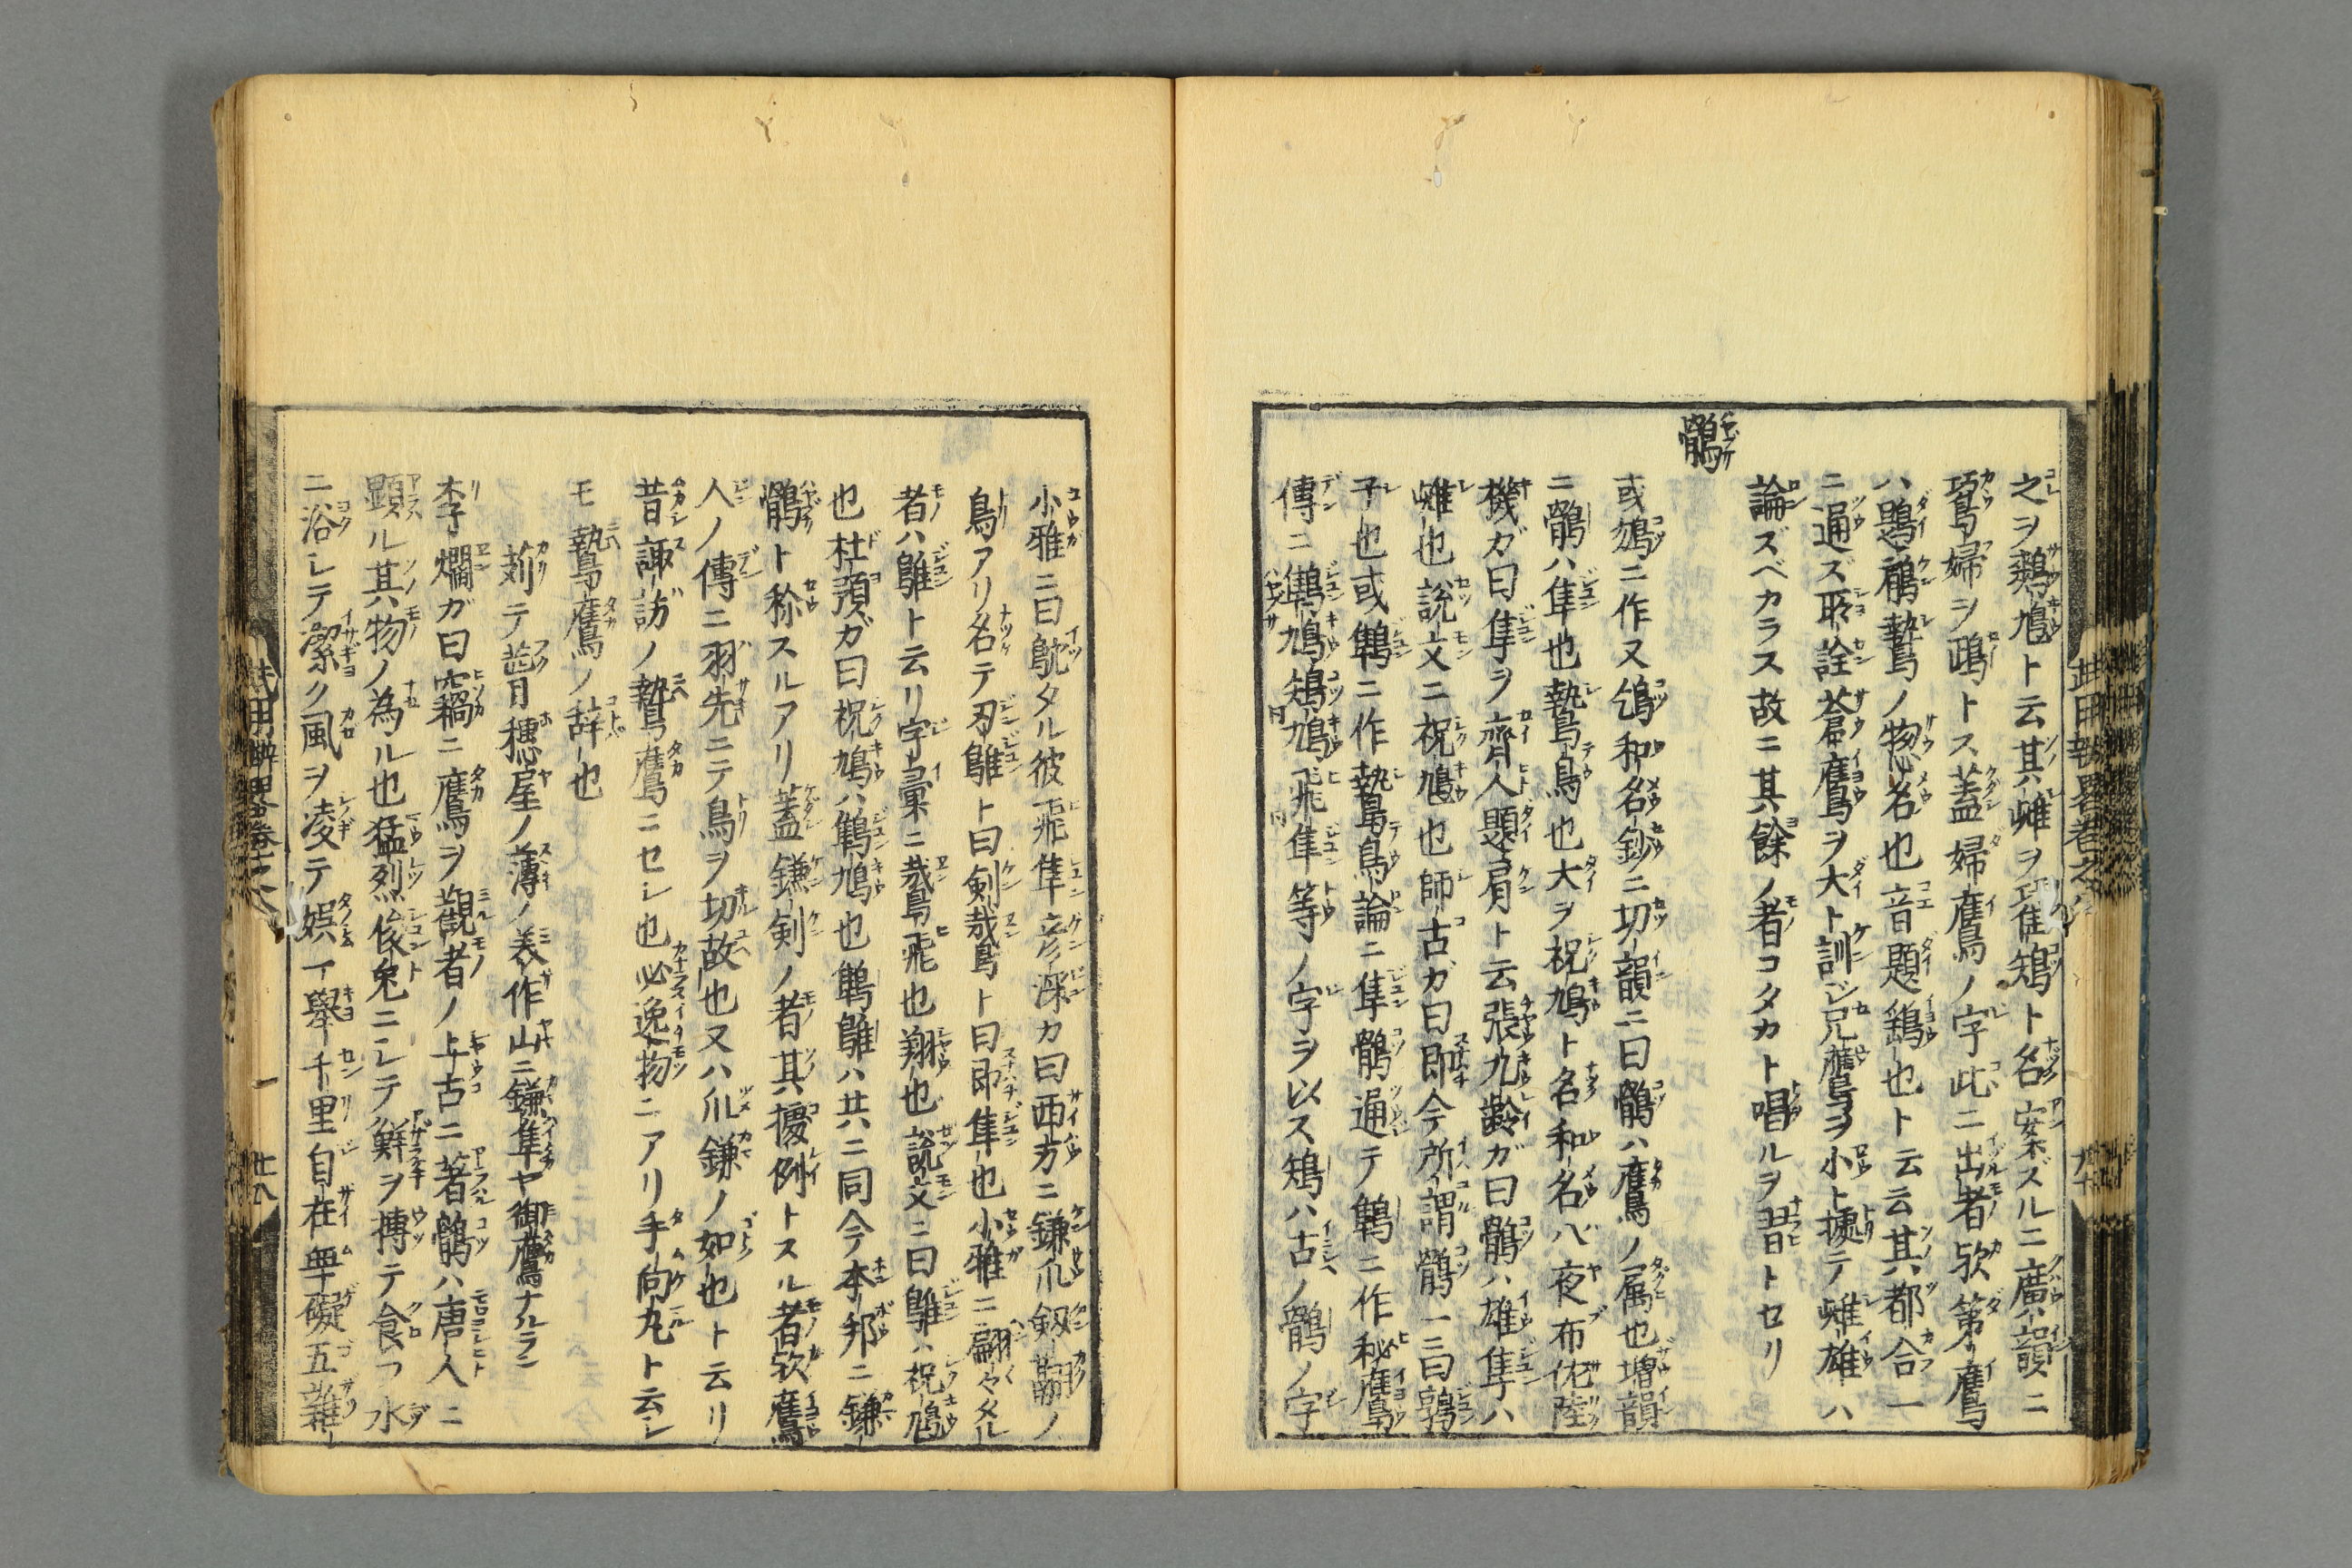 之ヲ鷞鳩ト云其雌ヲ隺鴙ト名案ズルニ廣韻ニ
鴌婦ヲ鴟トス蓋婦鷹ノ字此ニ出者欤第鷹
ハ鶗鵳鷙鳥ノ惣名也音題鷂也ト云云其都合一
ニ通ズ所詮蒼鷹ヲ大ト訓ジ兄鷹ヲ小ト據テ雌雄ハ
論ズベカラス故ニ其餘ノ者コタカト唱ルヲ習トセリ
鶻
或鶻ニ作又鴭和名鈔ニ切韻ニ曰鶻ハ鷹ノ属也増韻
ニ鶻ハ隼也鷙鳥也大ヲ祝鳩ト名和名ハ夜布佐陸
機ガ曰隼ヲ齊人題肩ト云張九齡ガ曰鶻ハ雄隼ハ
雌也説文ニ祝鳩也師古ガ曰即今所謂鶻一ニ曰鶉
子也或鵻ニ作鷙鳥論ニ隼鶻通テ鵻ニ作秘鷹
傳ニ鵻鳩鴙鳩飛隼等ノ字ヲ以ス鴙ハ古ノ鶻ノ字
小雅ニ曰鴥タル彼飛隼彦深カ曰西方ニ鎌爪剱翮ノ
鳥アリ名テ刃鵻ト曰剣鳶ト曰即隼也小雅ニ翩々タル
者ハ鵻ト云リ字彙ニ鳶飛也翔也説文ニ曰鵻ハ祝鳩
也杜預ガ曰祝鳩ハ鷦鳩也鵻鵻ハ共ニ同今本邦ニ鎌
鶻ト称スルアリ蓋鎌剣ノ者其擾例トスル者欤鷹
人ノ傳ニ羽先ニテ鳥ヲ切故也又ハ爪鎌ノ如也ト云リ
昔諏訪ノ贄鷹ニセシ也必逸物ニアリ手向丸ト云シ
モ贄鷹ノ辞也
苅テ葺穂屋ノ薄ノ美作山ニ鎌隼ヤ御鷹ナルラン
李爛ガ曰竊ニ鷹ヲ觀者ノ上古ニ著鶻ハ唐人ニ
顕ル其物ノ為ル也猛烈俊兔ニシテ鮮ヲ搏テ食フ水
ニ浴シテ潔ク風ヲ凌テ娯一擧千里自在無礙五雜